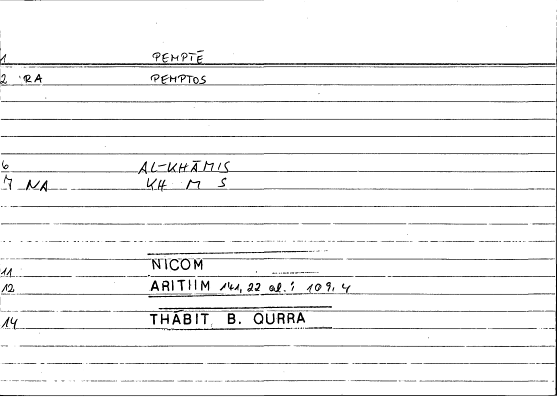 1 PEMPTĒ
2 RA PEMPTOS
6 AL-KHĀMIS
7 NA KH M S
11 NICOM
12 ARITIIM 141, 22 al.: 109, 4
14 THĀBIT B. QURRA